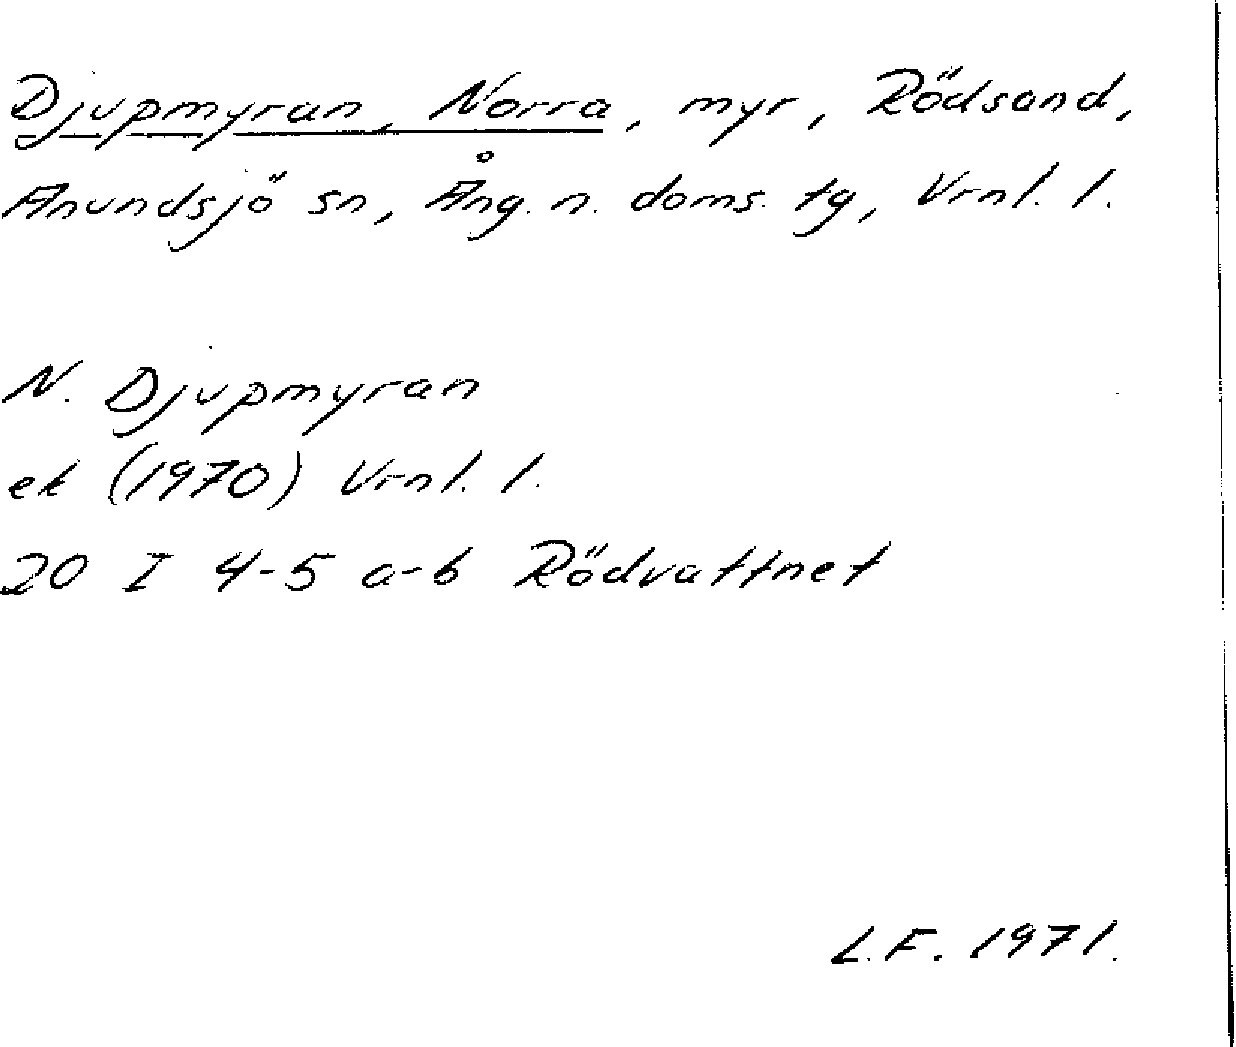 Djupmyran, Norra, myr, Rödsand,
Anundsjö sn, Ång. n. doms. tg, Vrnl. l.
N. Djupmyran
ek (1970) Vrnl. l.
20 I 4-5 a-b Rödvattnet
L.F. 1971.